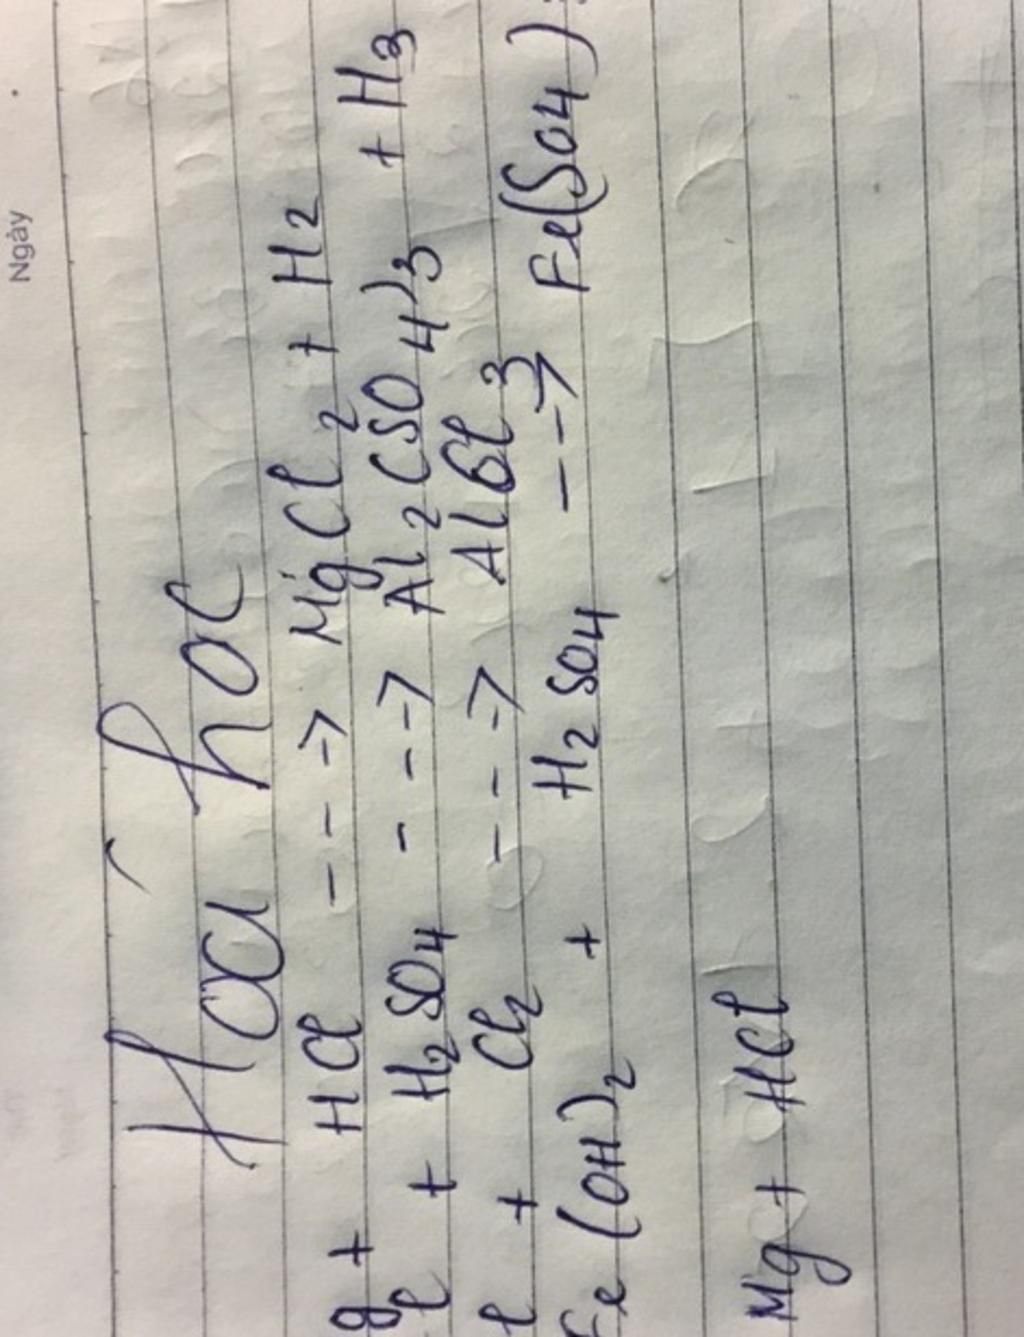 Ngày
Hoá học
g + HCl ---> MgCl2 + H2
l + H2SO4 ---> Al2(SO4)3 + H3
l + Cl2 ---> AlCl3
Fe(OH)2 + H2SO4 ---> Fe(SO4)
Mg + HCl